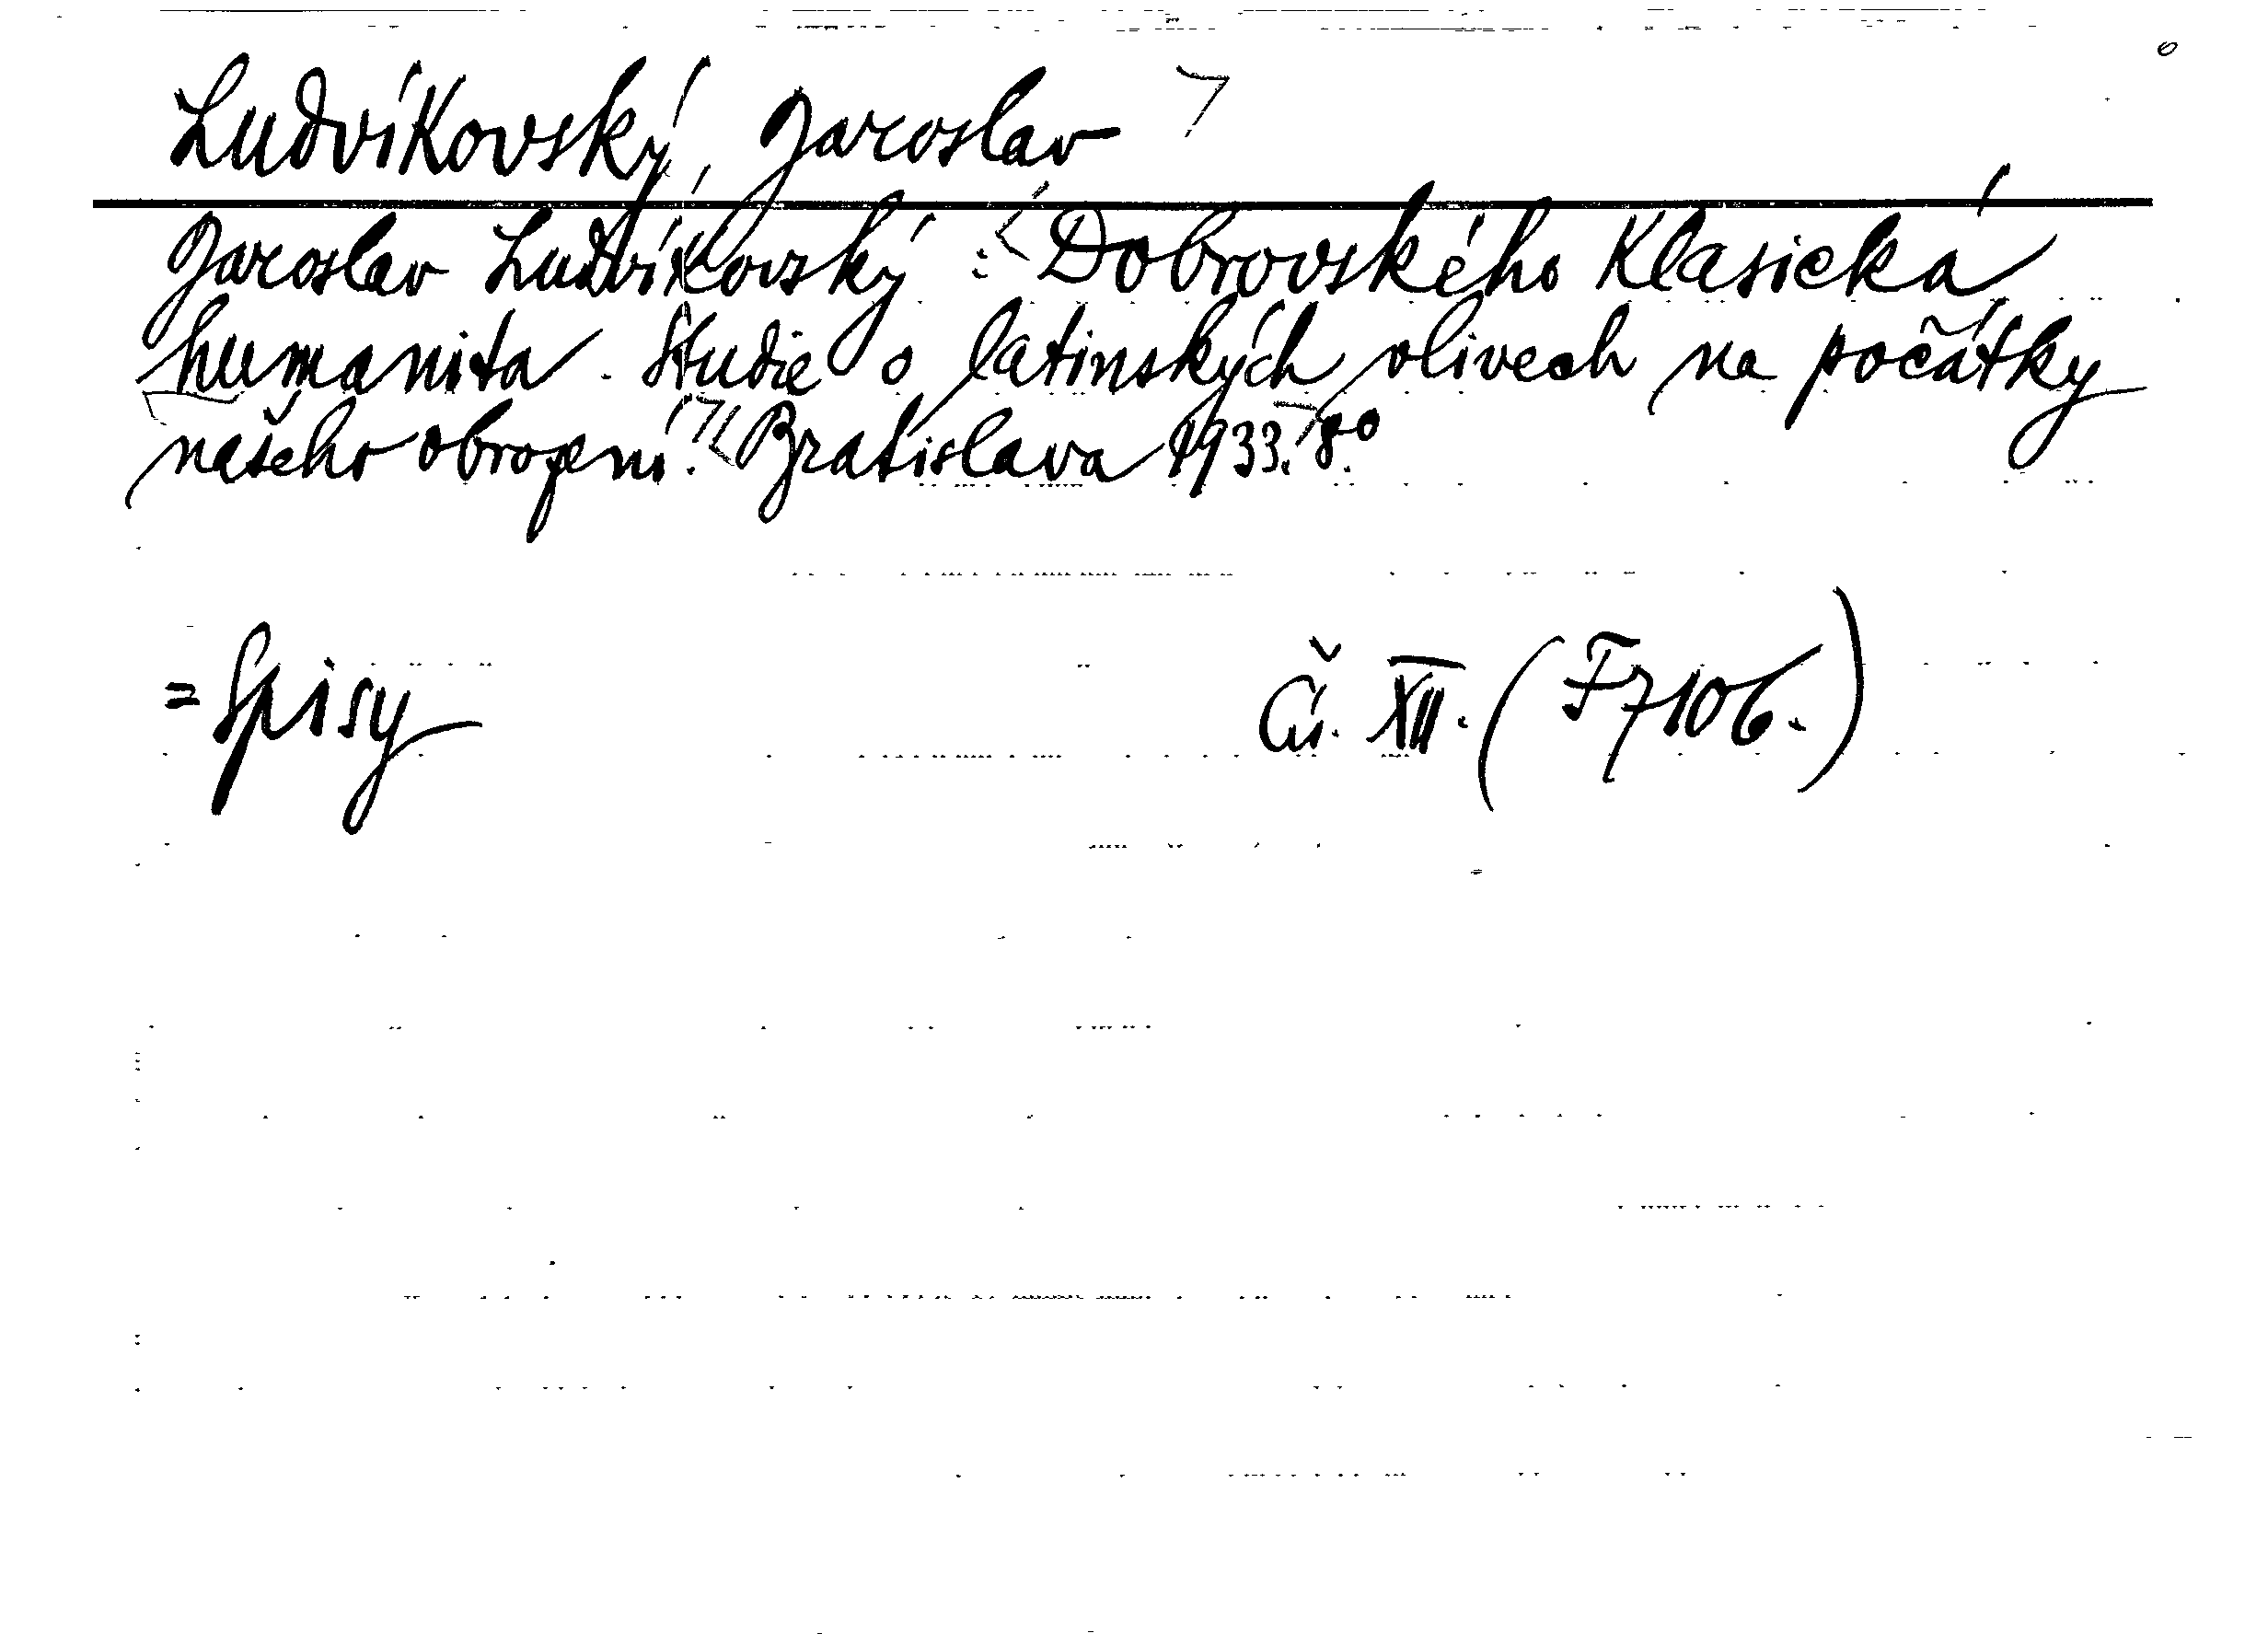 Ludvíkovský, Jaroslav
Jaroslav Ludvíkovský: Dobrovského klasická
humanita. Studie o latinských vlivech na počátky
našeho obrození. Bratislava 1933. 8.°
= Spisy Čís. XII. (F7106.)